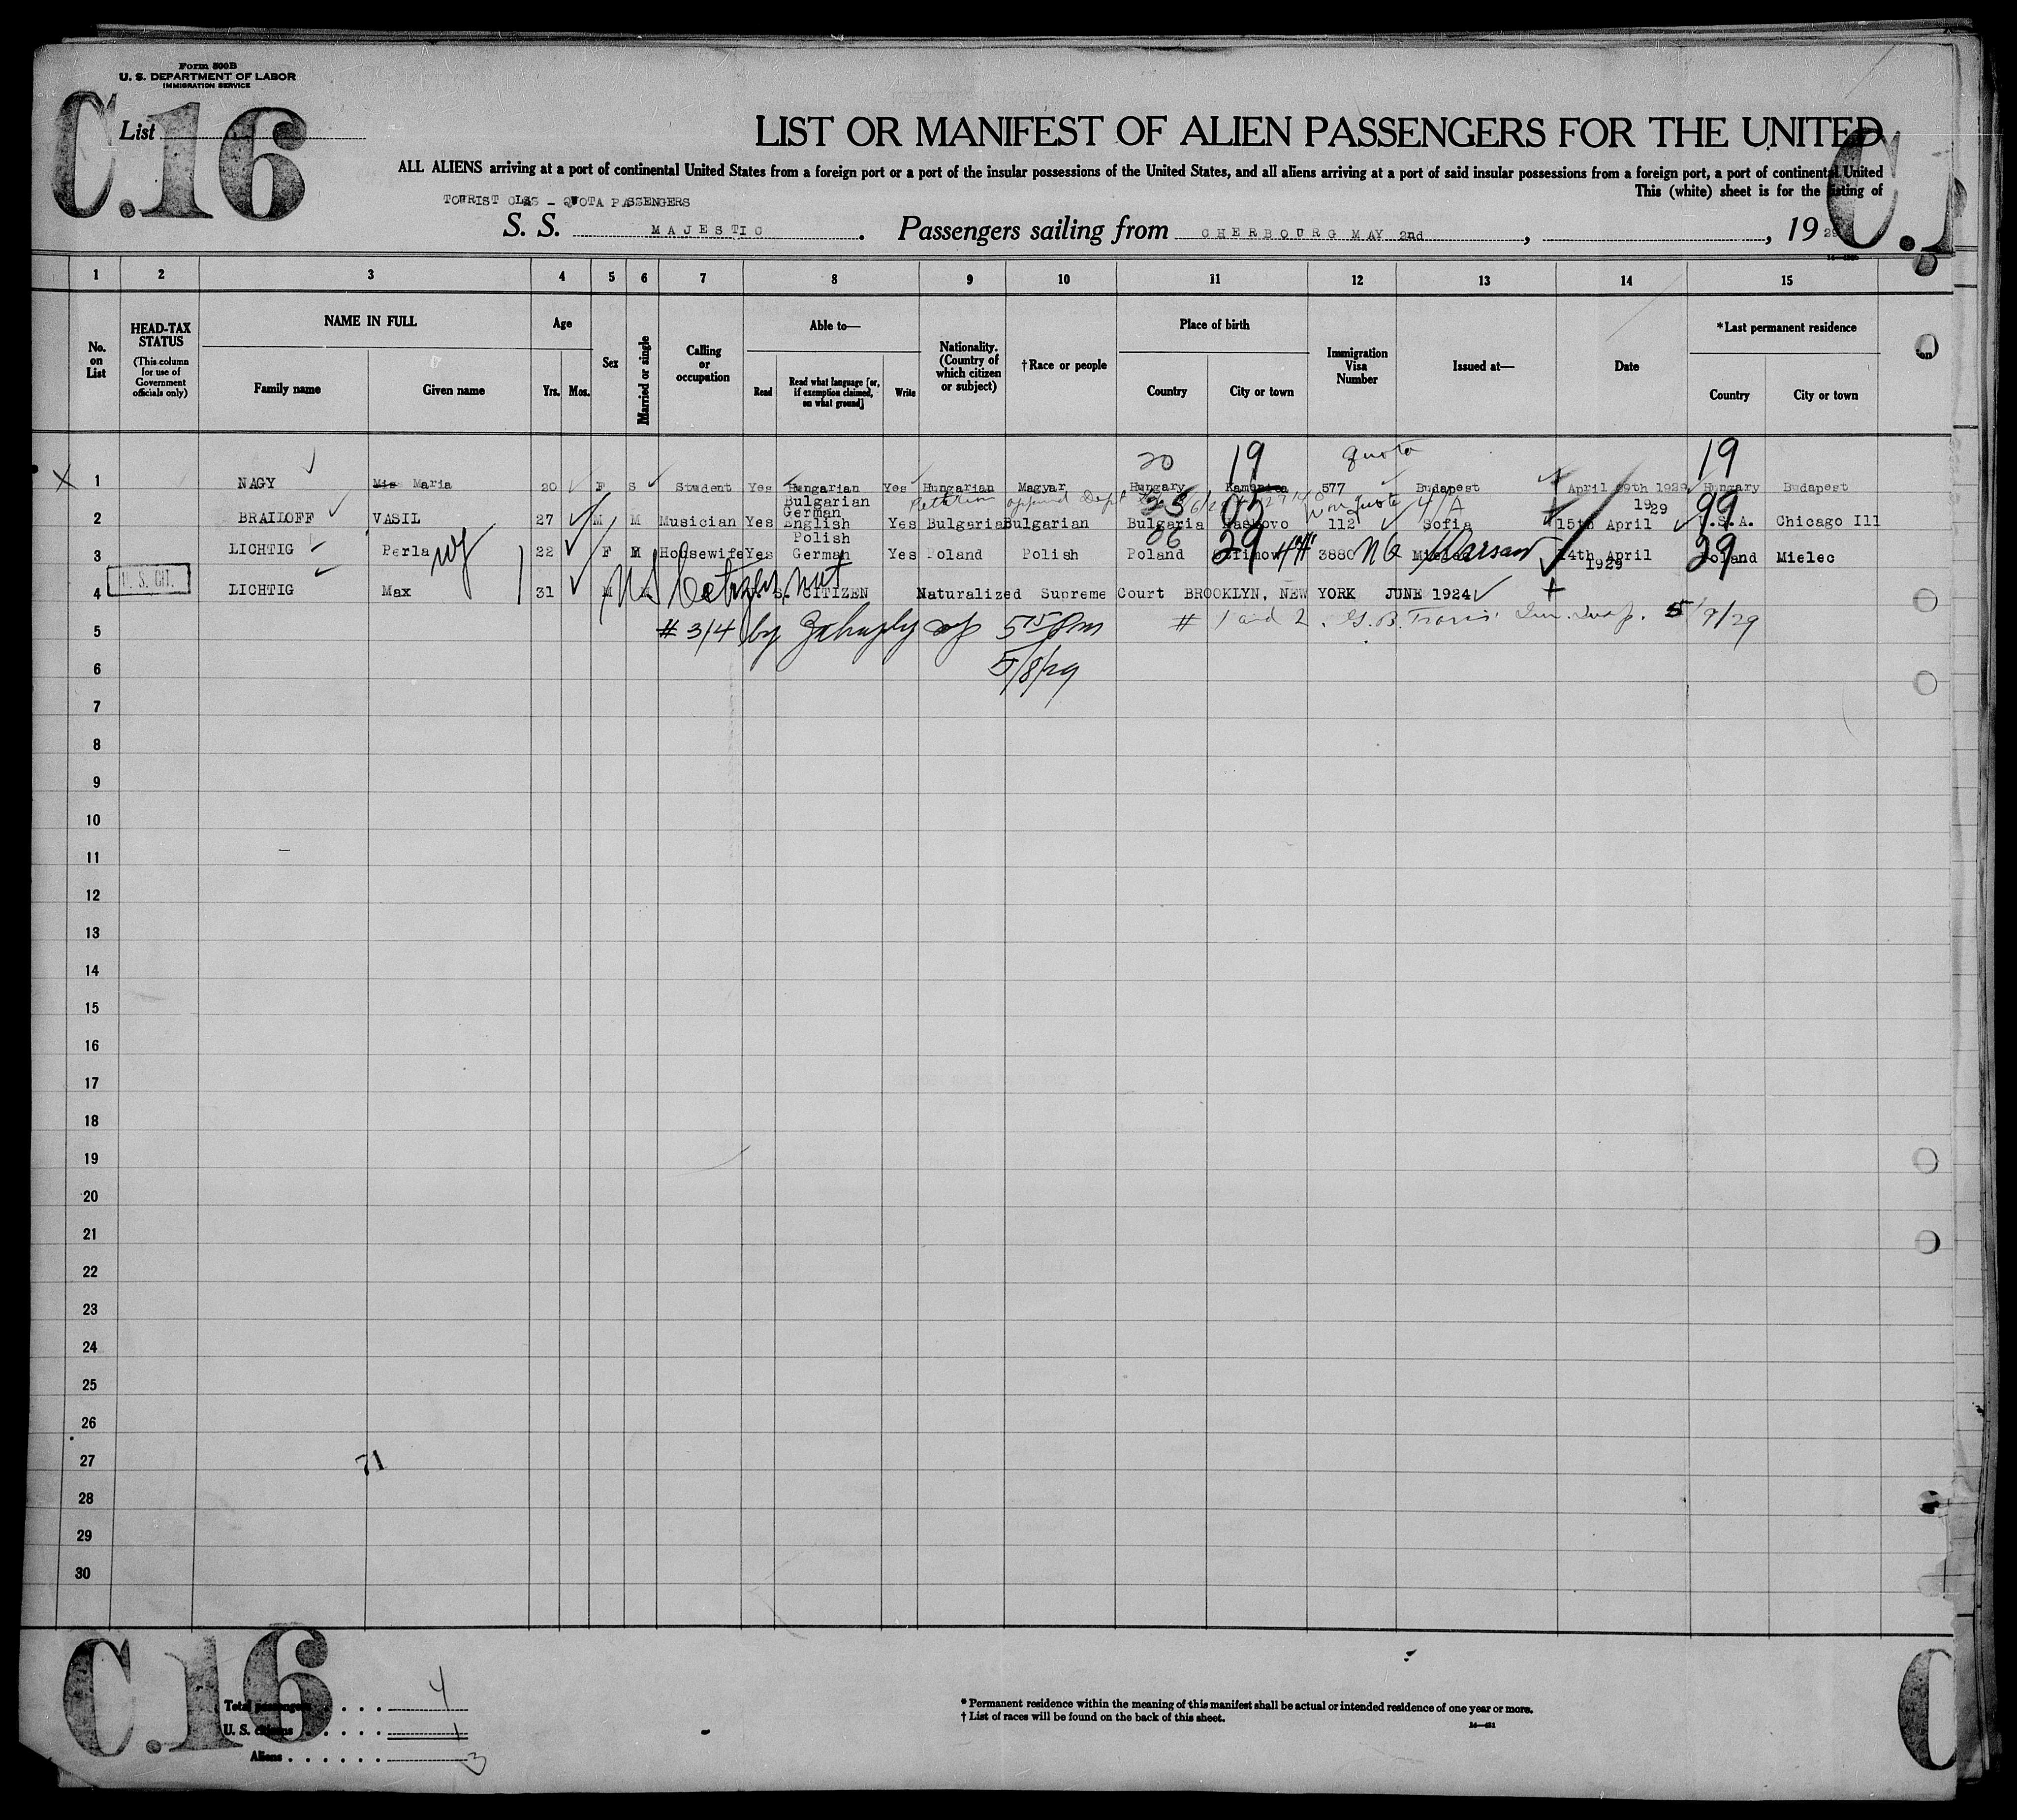 Form 500B
U. S. DEPARTMENT OF LABOR
IMMIGRATION SERVICE
C.16
List
LIST OR MANIFEST OF ALIEN PASSENGERS FOR THE UNITED
ALL ALIENS arriving at a port of continental United States from a foreign port or a port of the insular possessions of the United States, and all aliens arriving at a port of said insular possessions from a foreign port, a port of continental United
This (white) sheet is for the listing of
TOURIST CLAS - QUOTA PASSENGERS
S. S. MAJESTIC. Passengers sailing from CHERBOURG MAY 2nd, , 19 29
1 2 3 4 5 6 7 8 9 10 11 12 13 14 15
No. on List
HEAD-TAX STATUS
(This column for use of Government officials only)
NAME IN FULL
Family name
Given name
Age
Yrs.
Mos.
Sex
Married or single
Calling or occupation
Able to—
Read
Read what language [or, if exemption claimed, on what ground]
Write
Nationality. (Country of which citizen or subject)
†Race or people
Place of birth
Country
City or town
Immigration Visa Number
Issued at—
Date
*Last permanent residence
Country
City or town
20 19 quota 19
1 NAGY Mis Maria 20 F S Student Yes Hungarian Yes Hungarian Magyar Hungary 577 Budapest April 1929 Hungary Budapest
Bulgarian
German
2 BRAILOFF VASIL 27 M M Musician Yes English Yes Bulgaria Bulgarian Bulgaria 112 Sofia 15th April 1929 U.S.A. Chicago Ill
05 Non quota 4/A 99
Polish
3 LICHTIG Perla wf 22 F M Housewife Yes German Yes Poland Polish Poland 3880 NQ Warsaw 14th April 1929 Poland Mielec
06 29 29
U. S. CIT.
4 LICHTIG Max 31 M U.S. CITIZEN Naturalized Supreme Court BROOKLYN, NEW YORK JUNE 1924
US Citizen
5 # 3/4 by 5 15 Pm # 1 and 2. G. B. Travis Im. Insp. 5/9/29
6 5/8/29
7
8
9
10
11
12
13
14
15
16
17
18
19
20
21
22
23
24
25
26
27 71
28
29
30
C.16
Total passengers . . . . 4
U. S. citizens . . . . . 1
Aliens . . . . . . 3
* Permanent residence within the meaning of this manifest shall be actual or intended residence of one year or more.
† List of races will be found on the back of this sheet.
C